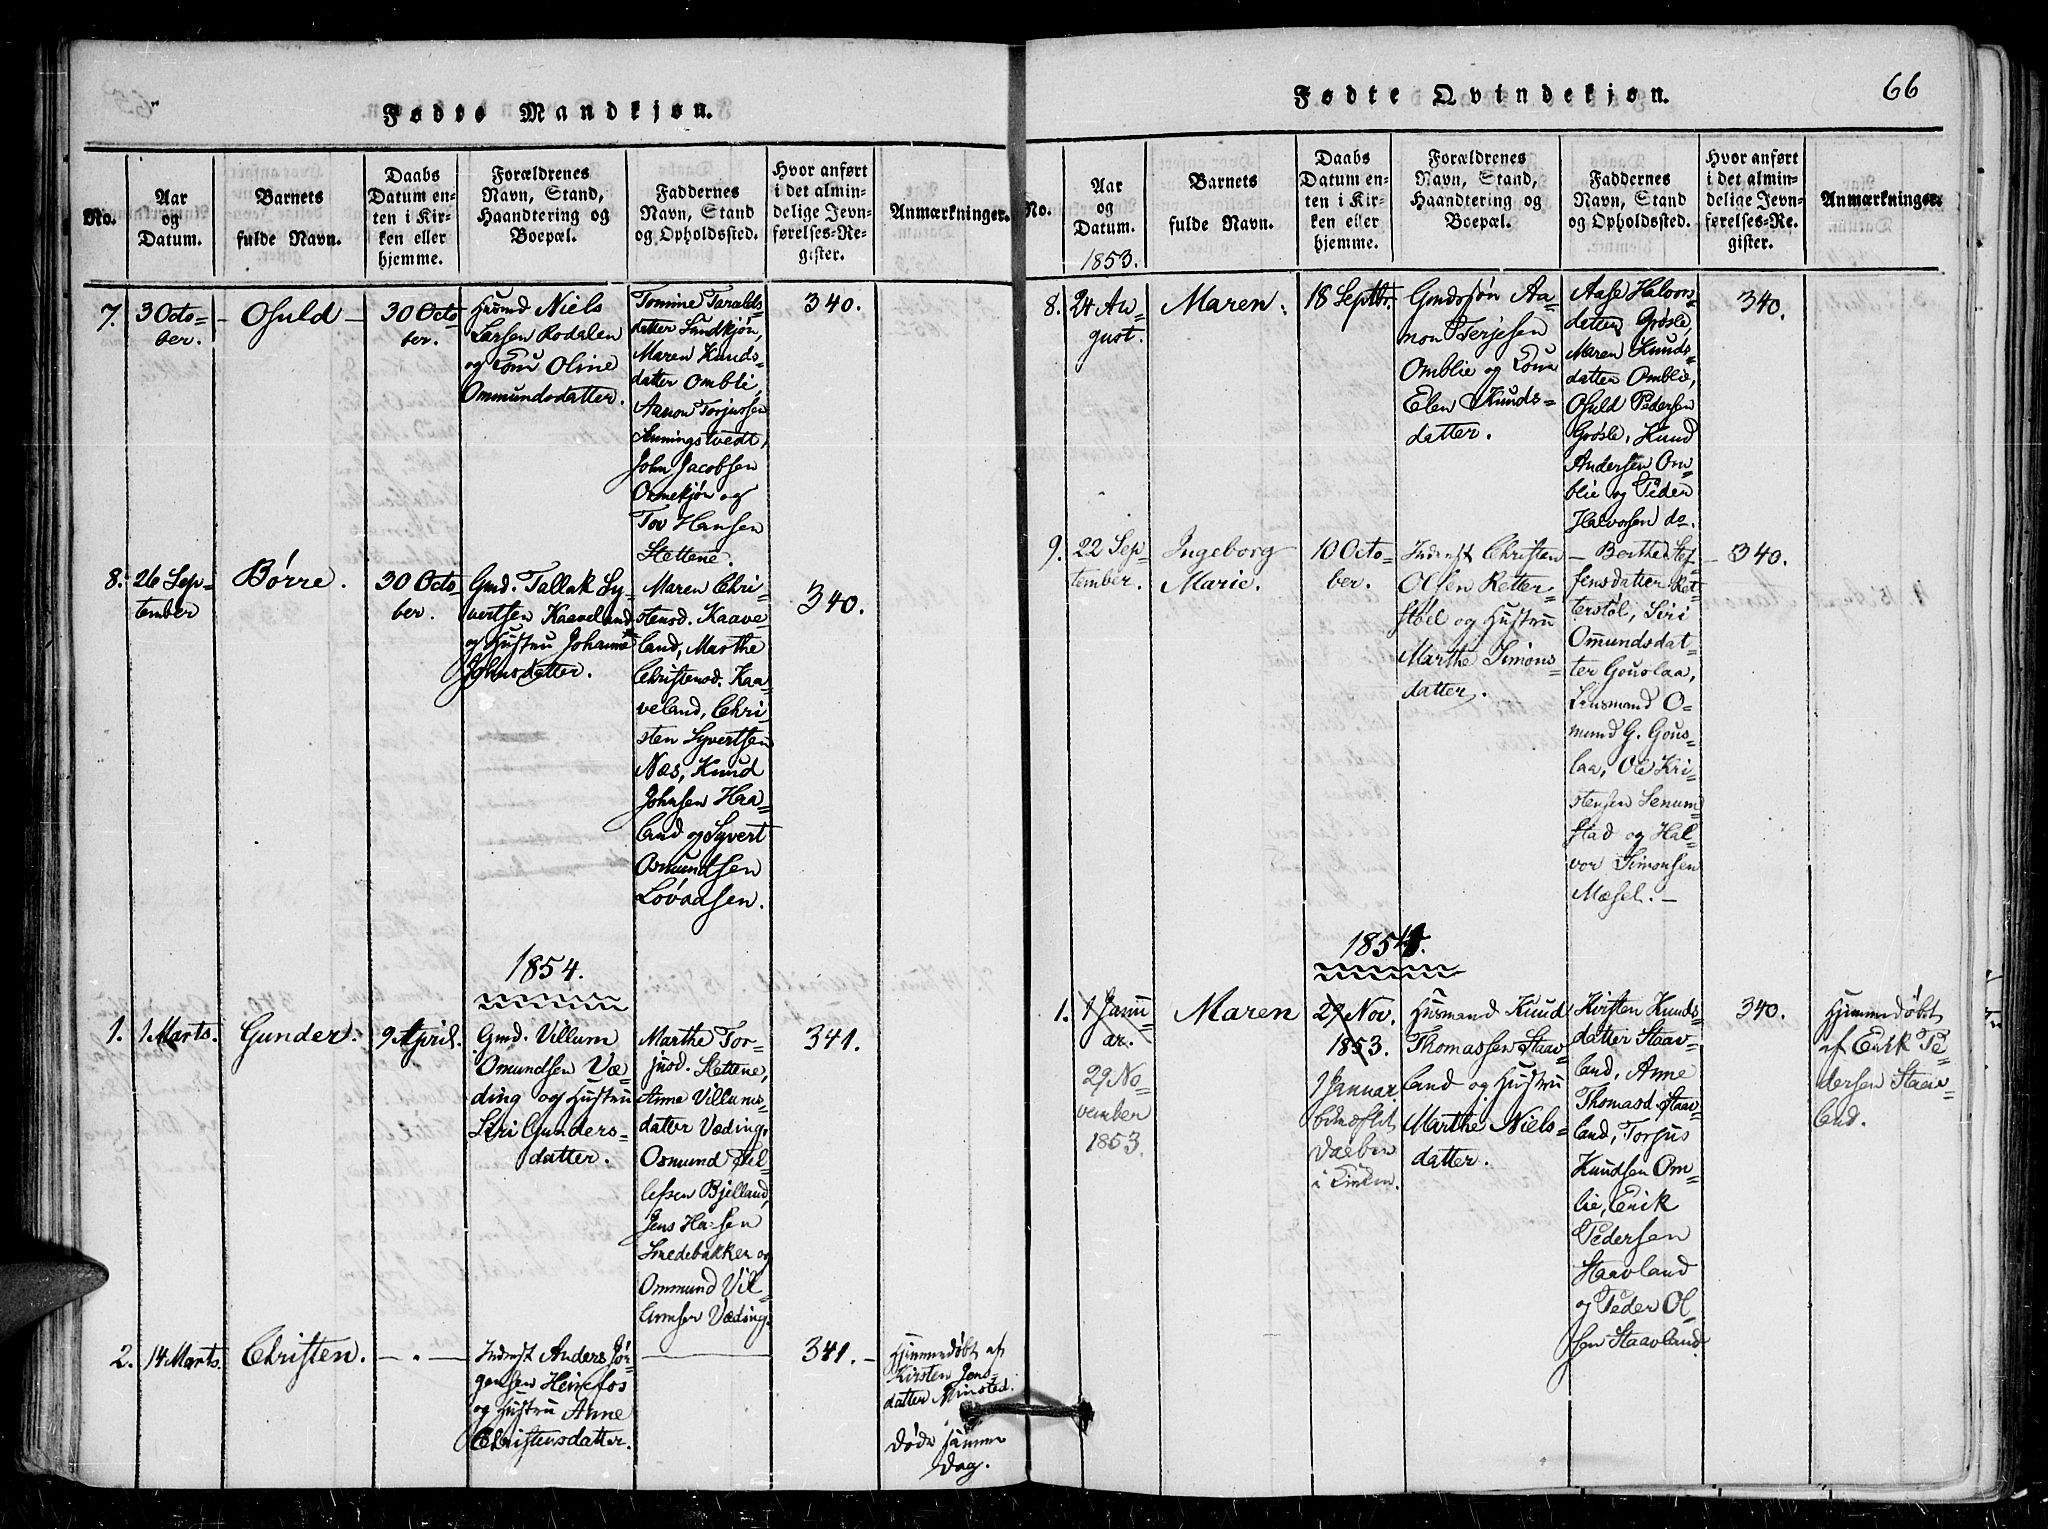 Fødte Mandkjøn.
No.
Aar
og
Datum.
Barnets
fulde Navn.
Daabs
Datum en-
ten i Kir-
ken eller
hjemme.
Forældrenes
Navn, Stand,
Haandtering og
Boepæl.
Faddernes
Navn, Stand
og Opholdssted.
Hvor anført
i det almin-
delige Jevn-
førelses-Re-
gister.
Anmærkninger.
7.
3 Octo-
ber.
Osuld
30 Octo-
ber.
Husmd Niels
Larsen Rodalen
og Kone Oline
Ommundsdatter.
Tomine Taralds-
datter Sandkjøn,
Maren Knuds-
datter Omblie,
Aanon Torjussen
John Jacobsen
Ormekjøn og
Tov Hansen
Slettene.
340.
8.
26 Sep-
tember
Børre.
30 Octo-
ber.
Gmd. Tallak Sy-
vertsen Kaaveland
og Hustru Johanne
Johnsdatter.
Maren Chri-
stensd. Kaave-
land, Marthe
Christensd. Kaa-
veland, Chri-
sten Syvertsen
Næs, Knud
Johnsen Haa-
land og Syvert
Osmundsen
Løvaasen.
340.
1854.
1.
1 Marts.
Gunder.
9 April.
Gmd. Villum
Omundsen Væ-
ding og Hustru
Siri Gunders-
datter.
Marthe Tor-
jusd. Slettene,
Anne Villums-
datter Væding,
Osmund
Bjelland,
Jens Hansen
Smedebakken og
Ommund Vil-
lumsen Væding.
341.
2.
14 Marts.
Christen.
Inderst Anders Jør-
gensen Heirefos
og Hustru Anne
Christensdatter.
341.
Hjemmedøbt af
Kirsten Jens-
datter Rinsted.
Døde samme
Dag.
Fødte Qvindekjøn.
66
No.
Aar
og
Datum.
1853.
Barnets
fulde Navn.
Daabs
Datum en-
ten i Kir-
ken eller
hjemme.
Forældrenes
Navn, Stand,
Haandtering og
Boepæl.
Faddernes
Navn, Stand
og Opholdssted.
Hvor anført
i det almin-
delige Jevn-
førelses-Re-
gister.
Anmærkninger.
8.
24 Au-
gust.
Maren.
18 Septbr.
Aa-
non Terjesen
Omblie og Kone
Elen Knuds-
datter.
Aase Halvors-
datter Grøsle,
Maren Knuds-
datter Omblie,
Osuld Pedersen
Grøsle, Knud
Andersen Om-
blie og Peder
Halvorsen do.
340.
9.
22 Sep-
tember.
Ingeborg
Marie.
10 Octo-
ber.
Inderst Christen
Olsen Retter-
støel og Hustru
Marthe Simons-
datter.
Berthe Stef-
fensdatter Ret-
terstøl, Siri
Omundsdat-
ter Gouslaa,
Lensmand O-
mund G. Gous-
laa, Ole Kri-
stensen Senum-
stad og Hal-
vor Simonsen
Mæsel.
340.
1854.
1.
1 Janu-
ar.
29 No-
vember
1853.
Maren
29 Nov.
1853.
1 Januar
Daaben
i Kirken.
Husmand Knud
Thomassen Staav-
land og Hustru
Marthe Niels-
datter.
Kirsten Knuds-
datter Staav-
land, Anne
Thomasd. Staav-
land, Torjus
Knudsen Om-
lie, Erik
Pedersen
Staavland
og Peder Ol-
sen Staavland.
340.
Hjemmedøbt
af Erik Pe-
dersen Staav-
land.